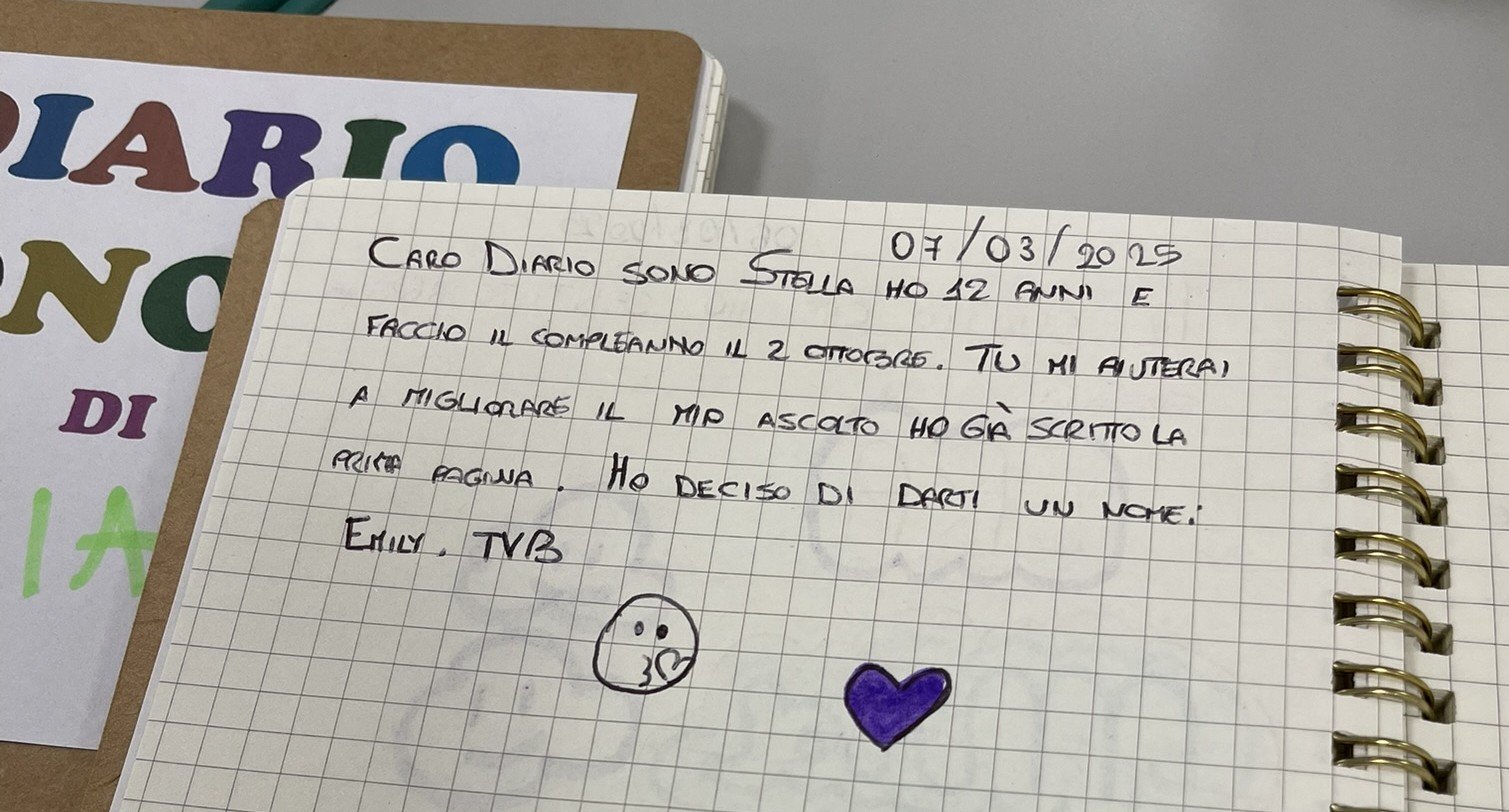 DIARIO
ONO
DI
IA
07/03/2025
CARO DIARIO SONO STELLA HO 12 ANNI E
FACCIO IL COMPLEANNO IL 2 OTTOBRE. TU MI AIUTERAI
A MIGLIORARE IL MIO ASCOLTO HO GIÀ SCRITTO LA
PRIMA PAGINA. HO DECISO DI DARTI UN NOME:
EMILY. TVB